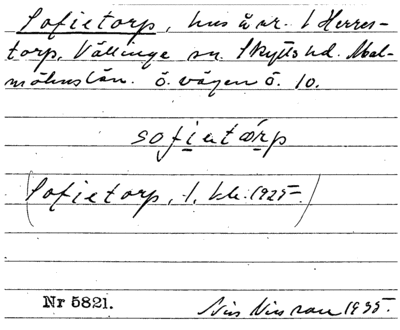 Sofietorp, hus å nr. 1 Herres-
torp, Vällinge sn. Skytts hd. Mal-
möhus län. ö. vägen ö. 10.
sofiətɷrp
(Sofietorp, 1. kk. 1925)
Nr 5821.
Nils Nilsson 1935.